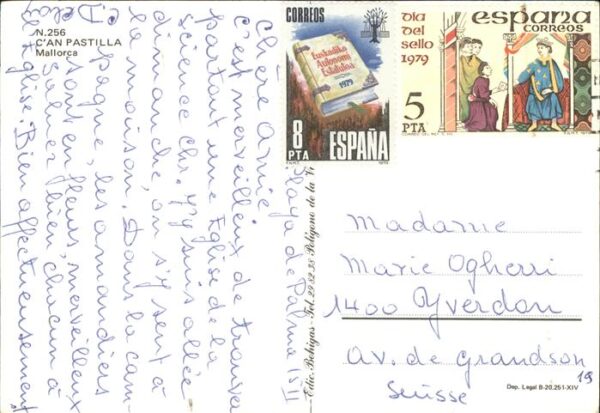 N.256
C'AN PASTILLA
Mallorca
Playa de Palma 15 II
Chère Amie
C'est merveilleux de trouver
partout une Eglise de la
science chr. J'y suis allée
dimanche, on s'y sent à
la maison. Dans la cam-
pagne, les amandiers
sont en fleurs, merveilleux
Saluez bien chacun à
l'Eglise. Bien affectueusement
CORREOS
Euskadiko
Autonomi
Estatutoa
1979
8
PTA
ESPAÑA
Dia
del
sello
1979
españa
CORREOS
5
PTA
Edic. Bohigas - Tel. 29 32 35 Polígono de la
Madame
Marie Ogherri
1400 Yverdon
Av. de Grandson
19
Suisse
Dep. Legal B-20.251-XIV